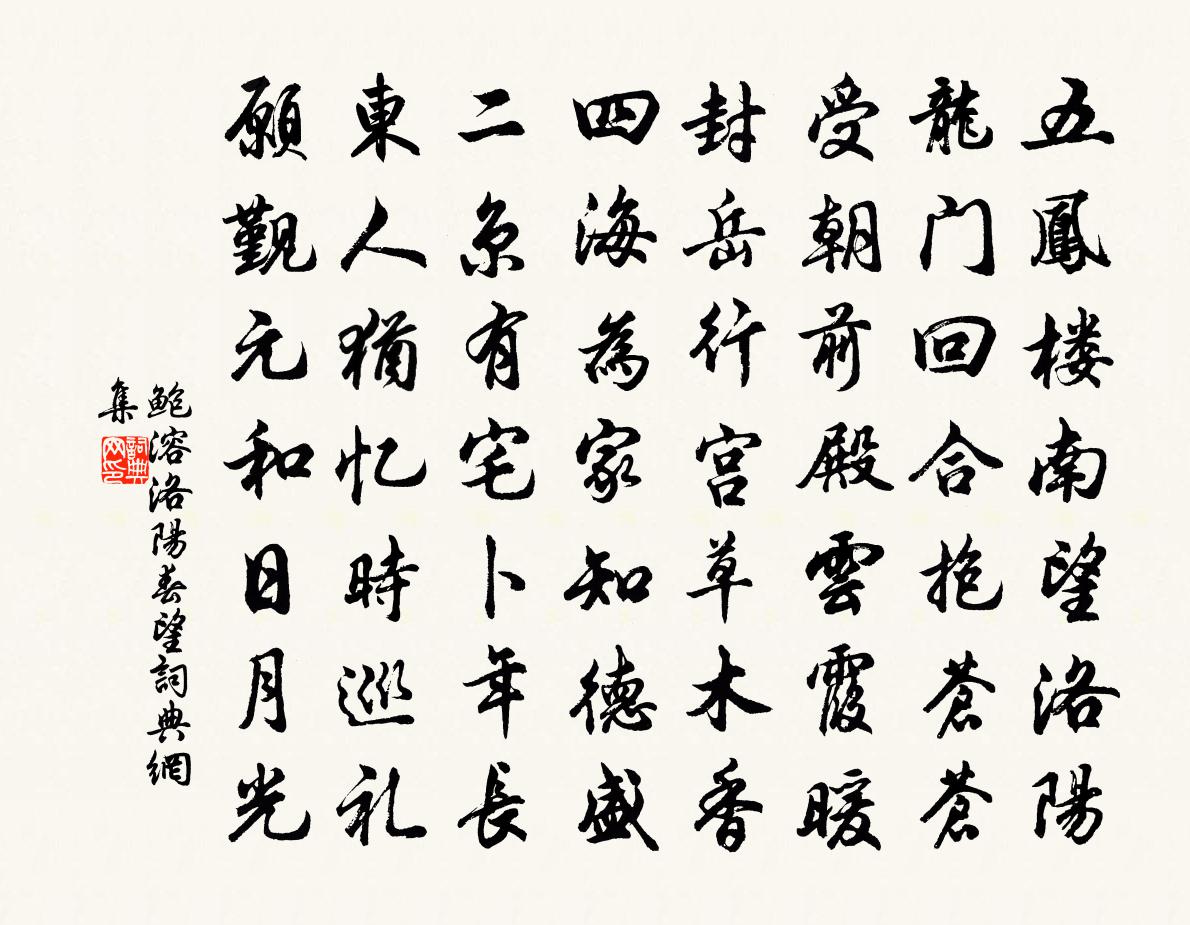 五鳳楼南望洛陽
龍门回合抱蒼蒼
受朝前殿雲霞暖
封岳行宮草木香
四海為家知德盛
二京有宅卜年長
東人猶忆時巡礼
願觀元和日月光
鮑溶洛陽春望詞典網
集
詞典
网印